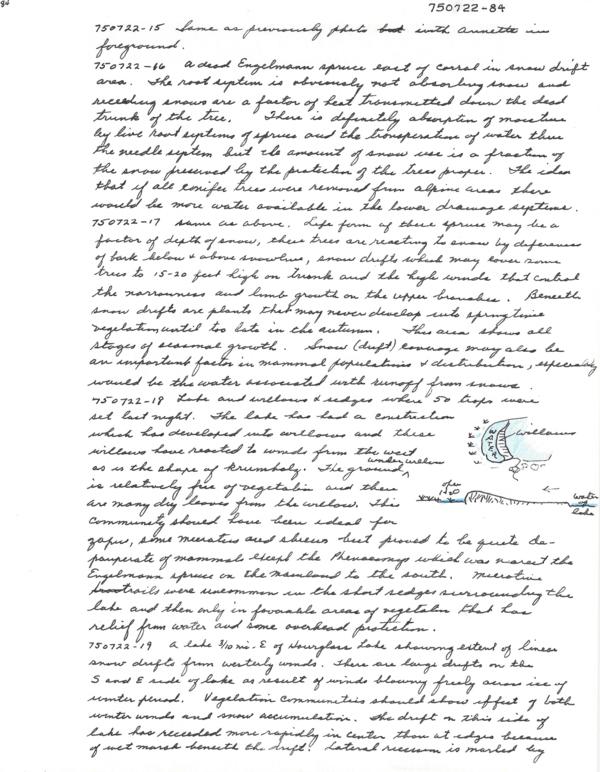 84
750722-84
750722-15 Same as previously photo but with Annette in
foreground.
750722-16 A dead Engelmann spruce east of corral in snow drift
area. The root system is obviously not absorbing snow and
receeding snows are a factor of heat transmitted down the dead
trunk of the tree. There is definitely absorption of moisture
by live root systems of spruces and the transperation of water thru
the needle system but the amount of snow use is a fraction of
the snow preserved by the protection of the trees proper. The idea
that if all conifer trees were removed from alpine areas there
would be more water available in the lower drainage systems.
750722-17 same as above. Life form of these spruce may be a
factor of depth of snow, these trees are reacting to snow by deferences
of bark below & above snowline, snow drifts which may cover some
trees to 15-20 feet high on trunk and the high winds that control
the narrowness and limb growth on the upper branches. Beneath
snow drifts are plants that may never develop into springtime
vegetation until too late in the autumn. This area shows all
stages of seasonal growth. Snow (drift) coverage may also be
an important factor in mammal populations & distribution, especially
would be the water associated with runoff from snows.
750722-18 Lake and willows & sedges where 50 traps were
set last night. The lake has had a constriction
which has developed into willows and these
willows have reacted to winds from the west
as is the shape of krumholz. The ground under willow
is relatively free of vegetation and there
are many dry leaves from the willow. This
community should have been ideal for
zapus, some microtus and shrews but proved to be quite de-
pauperate of mammals except the Phenacomys which was nearest the
Engelmann spruce on the mainland to the south. Microtine
trails were uncommon in the short sedges surrounding the
lake and then only in favorable areas of vegetation that has
relief from water and some overhead protection.
willows
open
H2O
water
of
lake
750722-19 A lake 3/10 mi. E of Hourglass Lake showing extent of linear
snow drifts from westerly winds. There are large drifts on the
S and E side of lake as result of winds blowing freely across ice of
winter period. Vegetation communities should show effect of both
winter winds and snow accumulation. The drift on this side of
lake has receeded more rapidly in center than at edges because
of wet marsh beneath the drift. Lateral recession is marked by